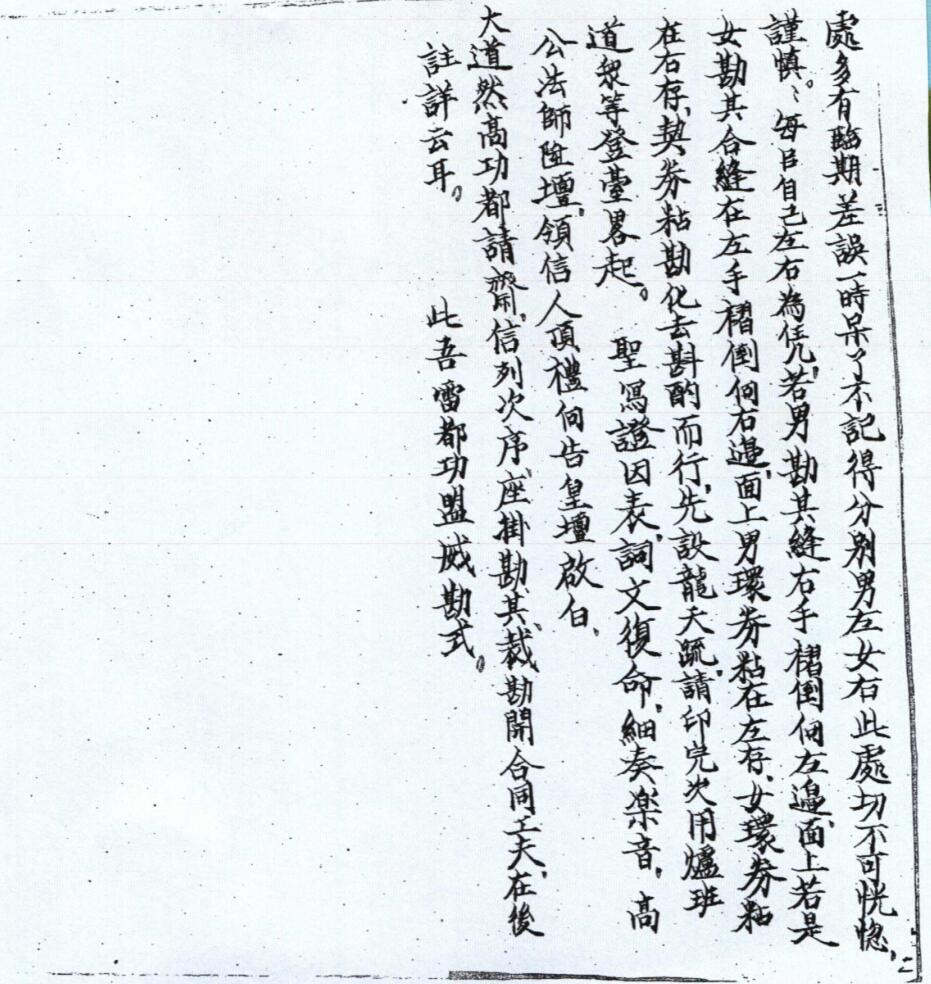 處多有臨期差誤一時呆了不記得分別男左女右此處切不可恍惚，
謹慎。〻每日自己左右為凭，若男勘其縫右手褶倒向左邊面上若是
女勘其合縫在左手褶倒向右邊，面上男環券粘在左存、女環券粘
在右存，契券粘勘化去斟酌而行，先設龍天疏，請印完次用爐班
道眾等登臺畧起。　聖寫證因表，詞文復命，細奏楽音，高
公法師陞壇，領信人頂禮向告皇壇啟白、
大道然高功都請齋，信列次序，座掛勘其、裁勘開合同工夫，在後
註詳云耳。　　此吾雷都功盟威勘式。